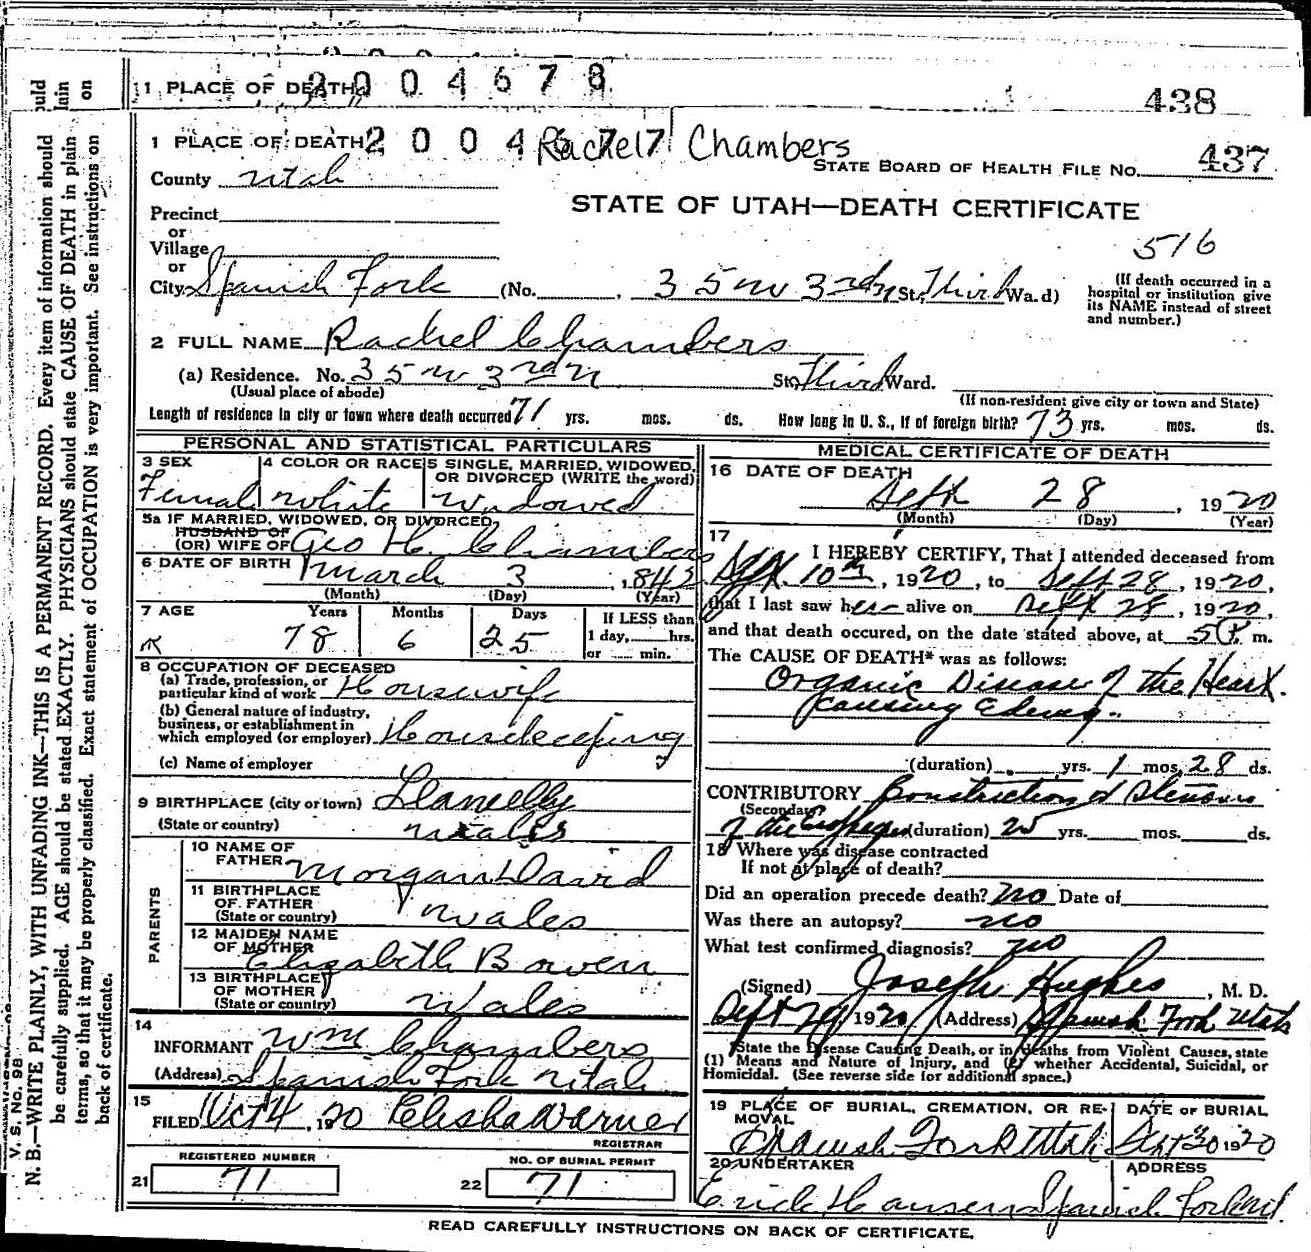 1 PLACE OF DEATH 2004678
438
1 PLACE OF DEATH 2004677 Rachel Chambers
STATE BOARD OF HEALTH FILE No. 437
County Utah
STATE OF UTAH—DEATH CERTIFICATE
Precinct
516
or
Village
or
City Spanish Fork (No. 35 W 3rd N St. Third Wa.d)
(If death occurred in a hospital or institution give its NAME instead of street and number.)
2 FULL NAME Rachel Chambers
(a) Residence. No. 35 W 3rd N St. Third Ward.
(Usual place of abode)
(If non-resident give city or town and State)
Length of residence in city or town where death occurred 71 yrs. mos. ds. How long in U. S., if of foreign birth? 73 yrs. mos. ds.
PERSONAL AND STATISTICAL PARTICULARS
3 SEX
Female
4 COLOR OR RACE
White
5 SINGLE, MARRIED, WIDOWED,
OR DIVORCED (WRITE the word)
Widowed
5a IF MARRIED, WIDOWED, OR DIVORCED
HUSBAND OF
(OR) WIFE OF Geo H. Chambers
6 DATE OF BIRTH March 3, 1842
(Month) (Day) (Year)
7 AGE Years Months Days If LESS than
78 6 25 1 day, hrs.
or min.
8 OCCUPATION OF DECEASED
(a) Trade, profession, or
particular kind of work Housewife
(b) General nature of industry,
business, or establishment in
which employed (or employer) Housekeeping
(c) Name of employer
9 BIRTHPLACE (city or town) Llanelly
(State or country) Wales
PARENTS
10 NAME OF
FATHER Morgan David
11 BIRTHPLACE
OF FATHER
(State or country) Wales
12 MAIDEN NAME
OF MOTHER Elizabeth Bowen
13 BIRTHPLACE
OF MOTHER
(State or country) Wales
14
INFORMANT Wm Chambers
(Address) Spanish Fork Utah
15
FILED Oct 4, 1920 Elisha Warner
REGISTRAR
REGISTERED NUMBER
21 71
NO. OF BURIAL PERMIT
22 71
MEDICAL CERTIFICATE OF DEATH
16 DATE OF DEATH
Sept 28, 1920
(Month) (Day) (Year)
17
I HEREBY CERTIFY, That I attended deceased from
Sept. 10th, 1920, to Sept 28, 1920,
that I last saw her alive on Sept 28, 1920,
and that death occured, on the date stated above, at 5 P. m.
The CAUSE OF DEATH* was as follows:
Organic Disease of the Heart.
causing Edema.
(duration) yrs. 1 mos. 28 ds.
CONTRIBUTORY Constriction & Stenosis
(Secondary)
of the Esophagus (duration) 25 yrs. mos. ds.
18 Where was disease contracted
If not at place of death?
Did an operation precede death? no Date of
Was there an autopsy? no
What test confirmed diagnosis? no
(Signed) Joseph Hughes, M. D.
Sept 29 1920 (Address) Spanish Fork Utah
State the Disease Causing Death, or in deaths from Violent Causes, state
(1) Means and Nature of Injury, and (2) whether Accidental, Suicidal, or
Homicidal. (See reverse side for additional space.)
19 PLACE OF BURIAL, CREMATION, OR RE-
MOVAL
Spanish Fork Utah
DATE OF BURIAL
Sept 30 1920
20 UNDERTAKER
Erick Hansen
ADDRESS
Spanish Fork
READ CAREFULLY INSTRUCTIONS ON BACK OF CERTIFICATE.
V. S. No. 98
N. B.—WRITE PLAINLY, WITH UNFADING INK—THIS IS A PERMANENT RECORD. Every item of information should
be carefully supplied. AGE should be stated EXACTLY. PHYSICIANS should state CAUSE OF DEATH in plain
terms, so that it may be properly classified. Exact statement of OCCUPATION is very important. See instructions on
back of certificate.